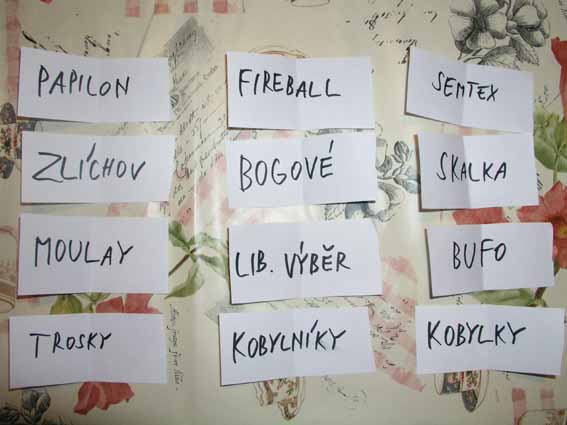 PAPILON
FIREBALL
SEMTEX
ZLÍCHOV
BOGOVÉ
SKALKA
MOULAY
LIB. VÝBĚR
BUFO
TROSKY
KOBYLNÍKY
KOBYLKY